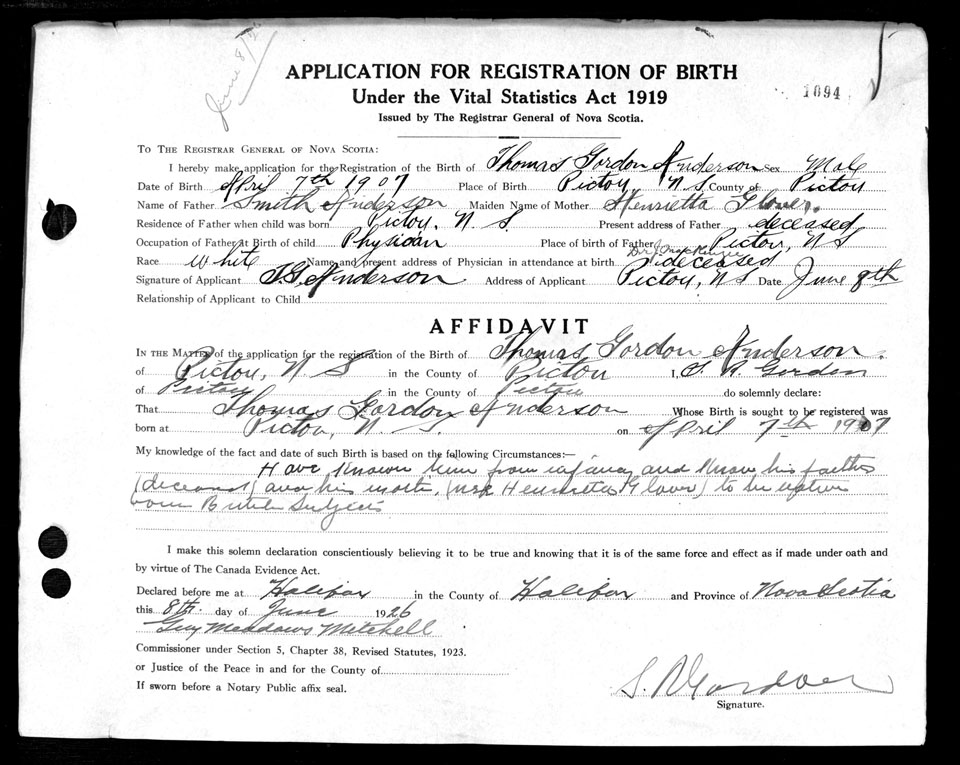 June 8/26
APPLICATION FOR REGISTRATION OF BIRTH
1094
Under the Vital Statistics Act 1919
Issued by The Registrar General of Nova Scotia.
TO THE REGISTRAR GENERAL OF NOVA SCOTIA:
I hereby make application for the Registration of the Birth of Thomas Gordon Anderson Sex Male
Date of Birth April 7th 1907 Place of Birth Pictou, N S County of Pictou
Name of Father Smith Anderson Maiden Name of Mother Henrietta Glover.
Residence of Father when child was born Pictou, N. S. Present address of Father deceased
Occupation of Father at Birth of child Physician Place of birth of Father Pictou, N S
Race White Name and present address of Physician in attendance at birth Dr. deceased
Signature of Applicant T. G. Anderson Address of Applicant Pictou, N S Date June 8th
Relationship of Applicant to Child
AFFIDAVIT
IN THE MATTER of the application for the registration of the Birth of Thomas Gordon Anderson.
of Pictou, N S in the County of Pictou I, S. R Gordon
of Pictou in the County of Pictou do solemnly declare:
That Thomas Gordon Anderson Whose Birth is sought to be registered was
born at Pictou, N. S. on April 7th 1907
My knowledge of the fact and date of such Birth is based on the following Circumstances:—
Have known him from infancy and know his father
(deceased) and his mother, (nee Henrietta Glover) to be native
born British Subjects
I make this solemn declaration conscientiously believing it to be true and knowing that it is of the same force and effect as if made under oath and
by virtue of The Canada Evidence Act.
Declared before me at Halifax in the County of Halifax and Province of Nova Scotia
this 8th. day of June 1926
Guy Meadows Mitchell
Commissioner under Section 5, Chapter 38, Revised Statutes, 1923.
or Justice of the Peace in and for the County of
If sworn before a Notary Public affix seal.
S. R Gordon
Signature.